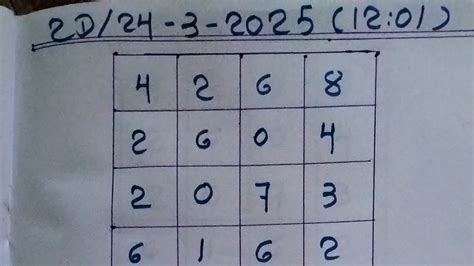 2D/24-3-2025 (12:01)
4 2 6 8
2 6 0 4
2 0 7 3
6 1 6 2